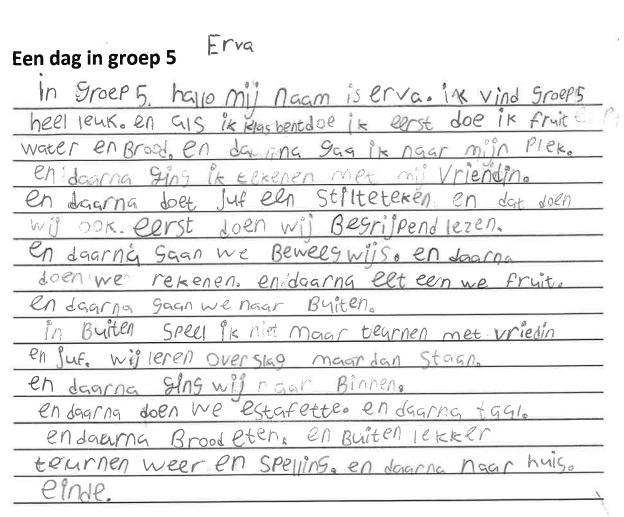 Erva
Een dag in groep 5
in groep 5. hallo mij naam is erva. ik vind groep5
heel leuk. en als ik klas bent doe ik eerst doe ik fruit
water en Brood. en daarna gaa ik naar mijn Plek.
en daarna ging ik tekenen met mij vriendin.
en daarna doet juf een Stilteteken en dat doen
wij ook. eerst doen wij Begrijpend lezen.
en daarna gaan we Beweegwijs. en daarna
doen we rekenen. en daarna eet een we fruit.
en daarna gaan we naar Buiten.
in Buiten speel ik niet maar teurnen met vriedin
en juf. wij leren overslag maar dan Staan.
en daarna ging wij naar Binnen.
en daarna doen we estafette. en daarna taal.
en daarna Brood eten. en Buiten lekker
teurnen weer en spelling. en daarna naar huis.
einde.